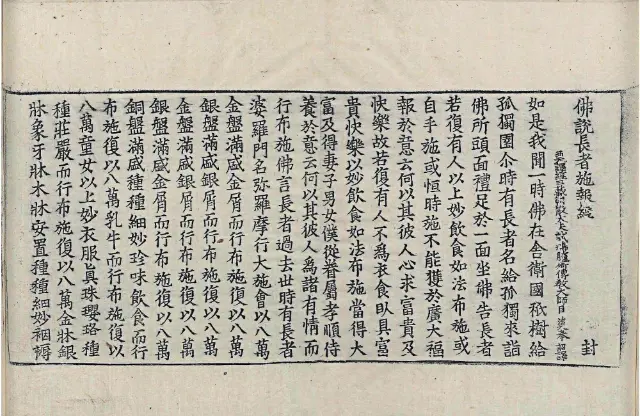 佛說長者施報經 封
西天譯經三藏朝散大夫試鴻臚卿傳教大師臣法天奉 詔譯
如是我聞一時佛在舍衛國祇樹給
孤獨園尒時有長者名給孤獨來詣
佛所頭面禮足於一面坐佛告長者
若復有人以上妙飲食如法布施或
自手施或恒時施不能獲於廣大福
報於意云何以其彼人心求富貴及
快樂故若復有人不爲衣食卧具富
貴快樂以妙飲食如法布施當得大
富及得妻子男女僕從眷屬孝順侍
養於意云何以其彼人爲諸有情而
行布施佛言長者過去世時有長者
婆羅門名弥羅摩行大施會以八萬
金盤滿盛金屑而行布施復以八萬
銀盤滿盛銀屑而行布施復以八萬
金盤滿盛銀屑而行布施復以八萬
銀盤滿盛金屑而行布施復以八萬
銅盤滿盛種種細妙珍味飲食而行
布施復以八萬乳牛而行布施復以
八萬童女以上妙衣服眞珠瓔珞種
種莊嚴而行布施復以八萬金牀銀
牀象牙牀木牀安置種種細妙裀褥